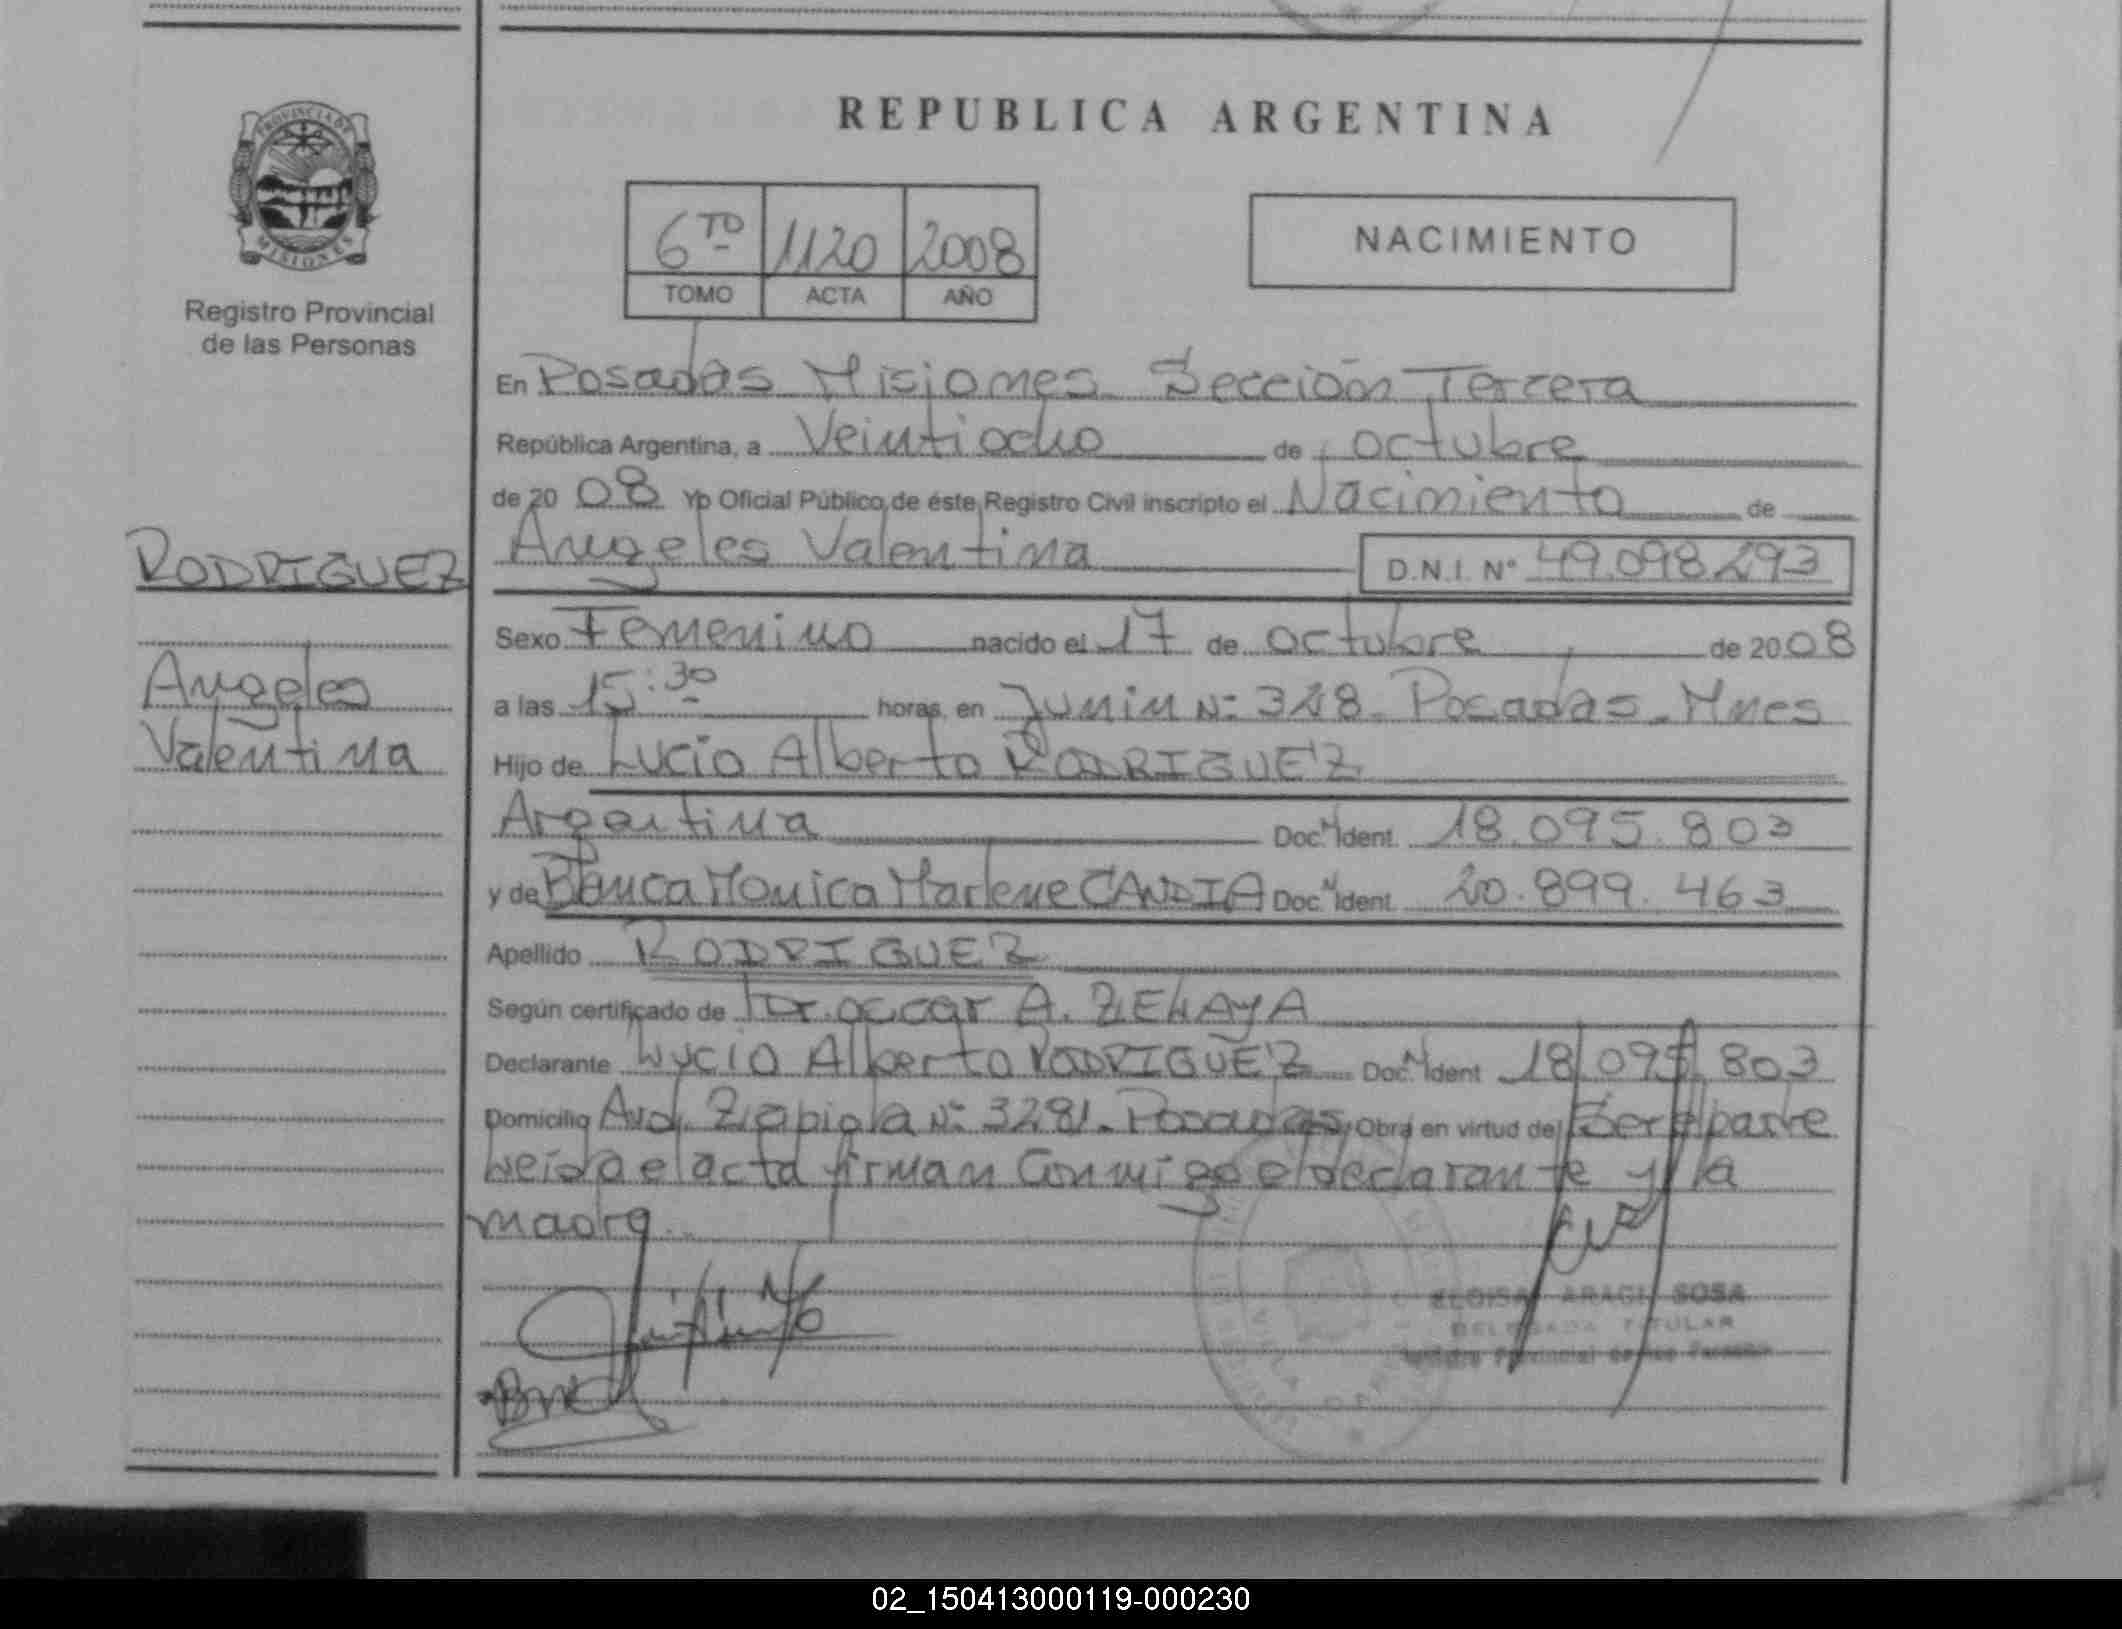 REPUBLICA ARGENTINA
PROVINCIA DE
MISIONES
Registro Provincial
de las Personas
6TO 1120 2008
TOMO ACTA AÑO
NACIMIENTO
En Posadas Misiones Sección Tercera
República Argentina, a Veintiocho de octubre
de 2008 Yo Oficial Público de éste Registro Civil inscripto el Nacimiento de
Angeles Valentina D.N.I. Nº 49.098.293
RODRIGUEZ
Angeles
Valentina
Sexo Femenino nacido el 17 de octubre de 2008
a las 15:30 horas, en Junin Nº 328. Posadas. Mnes
Hijo de Lucio Alberto RODRIGUEZ
Argentina Doc. Ident. 18.095.803
y de Blanca Monica Marlene CANDIA Doc. Ident. 20.899.463
Apellido RODRIGUEZ
Según certificado de Dr. oscar A. ZELAYA
Declarante Lucio Alberto RODRIGUEZ Doc. Ident 18.095.803
Domicilio Avd. Zapiola Nº 3281. Posadas Obra en virtud de Ser el padre
Leida el acta firman Conmigo el declarante y la
madre.
ELOISA ARAGI SOSA
DELEGADA TITULAR
Registro Provincial de las Personas
02_150413000119-000230